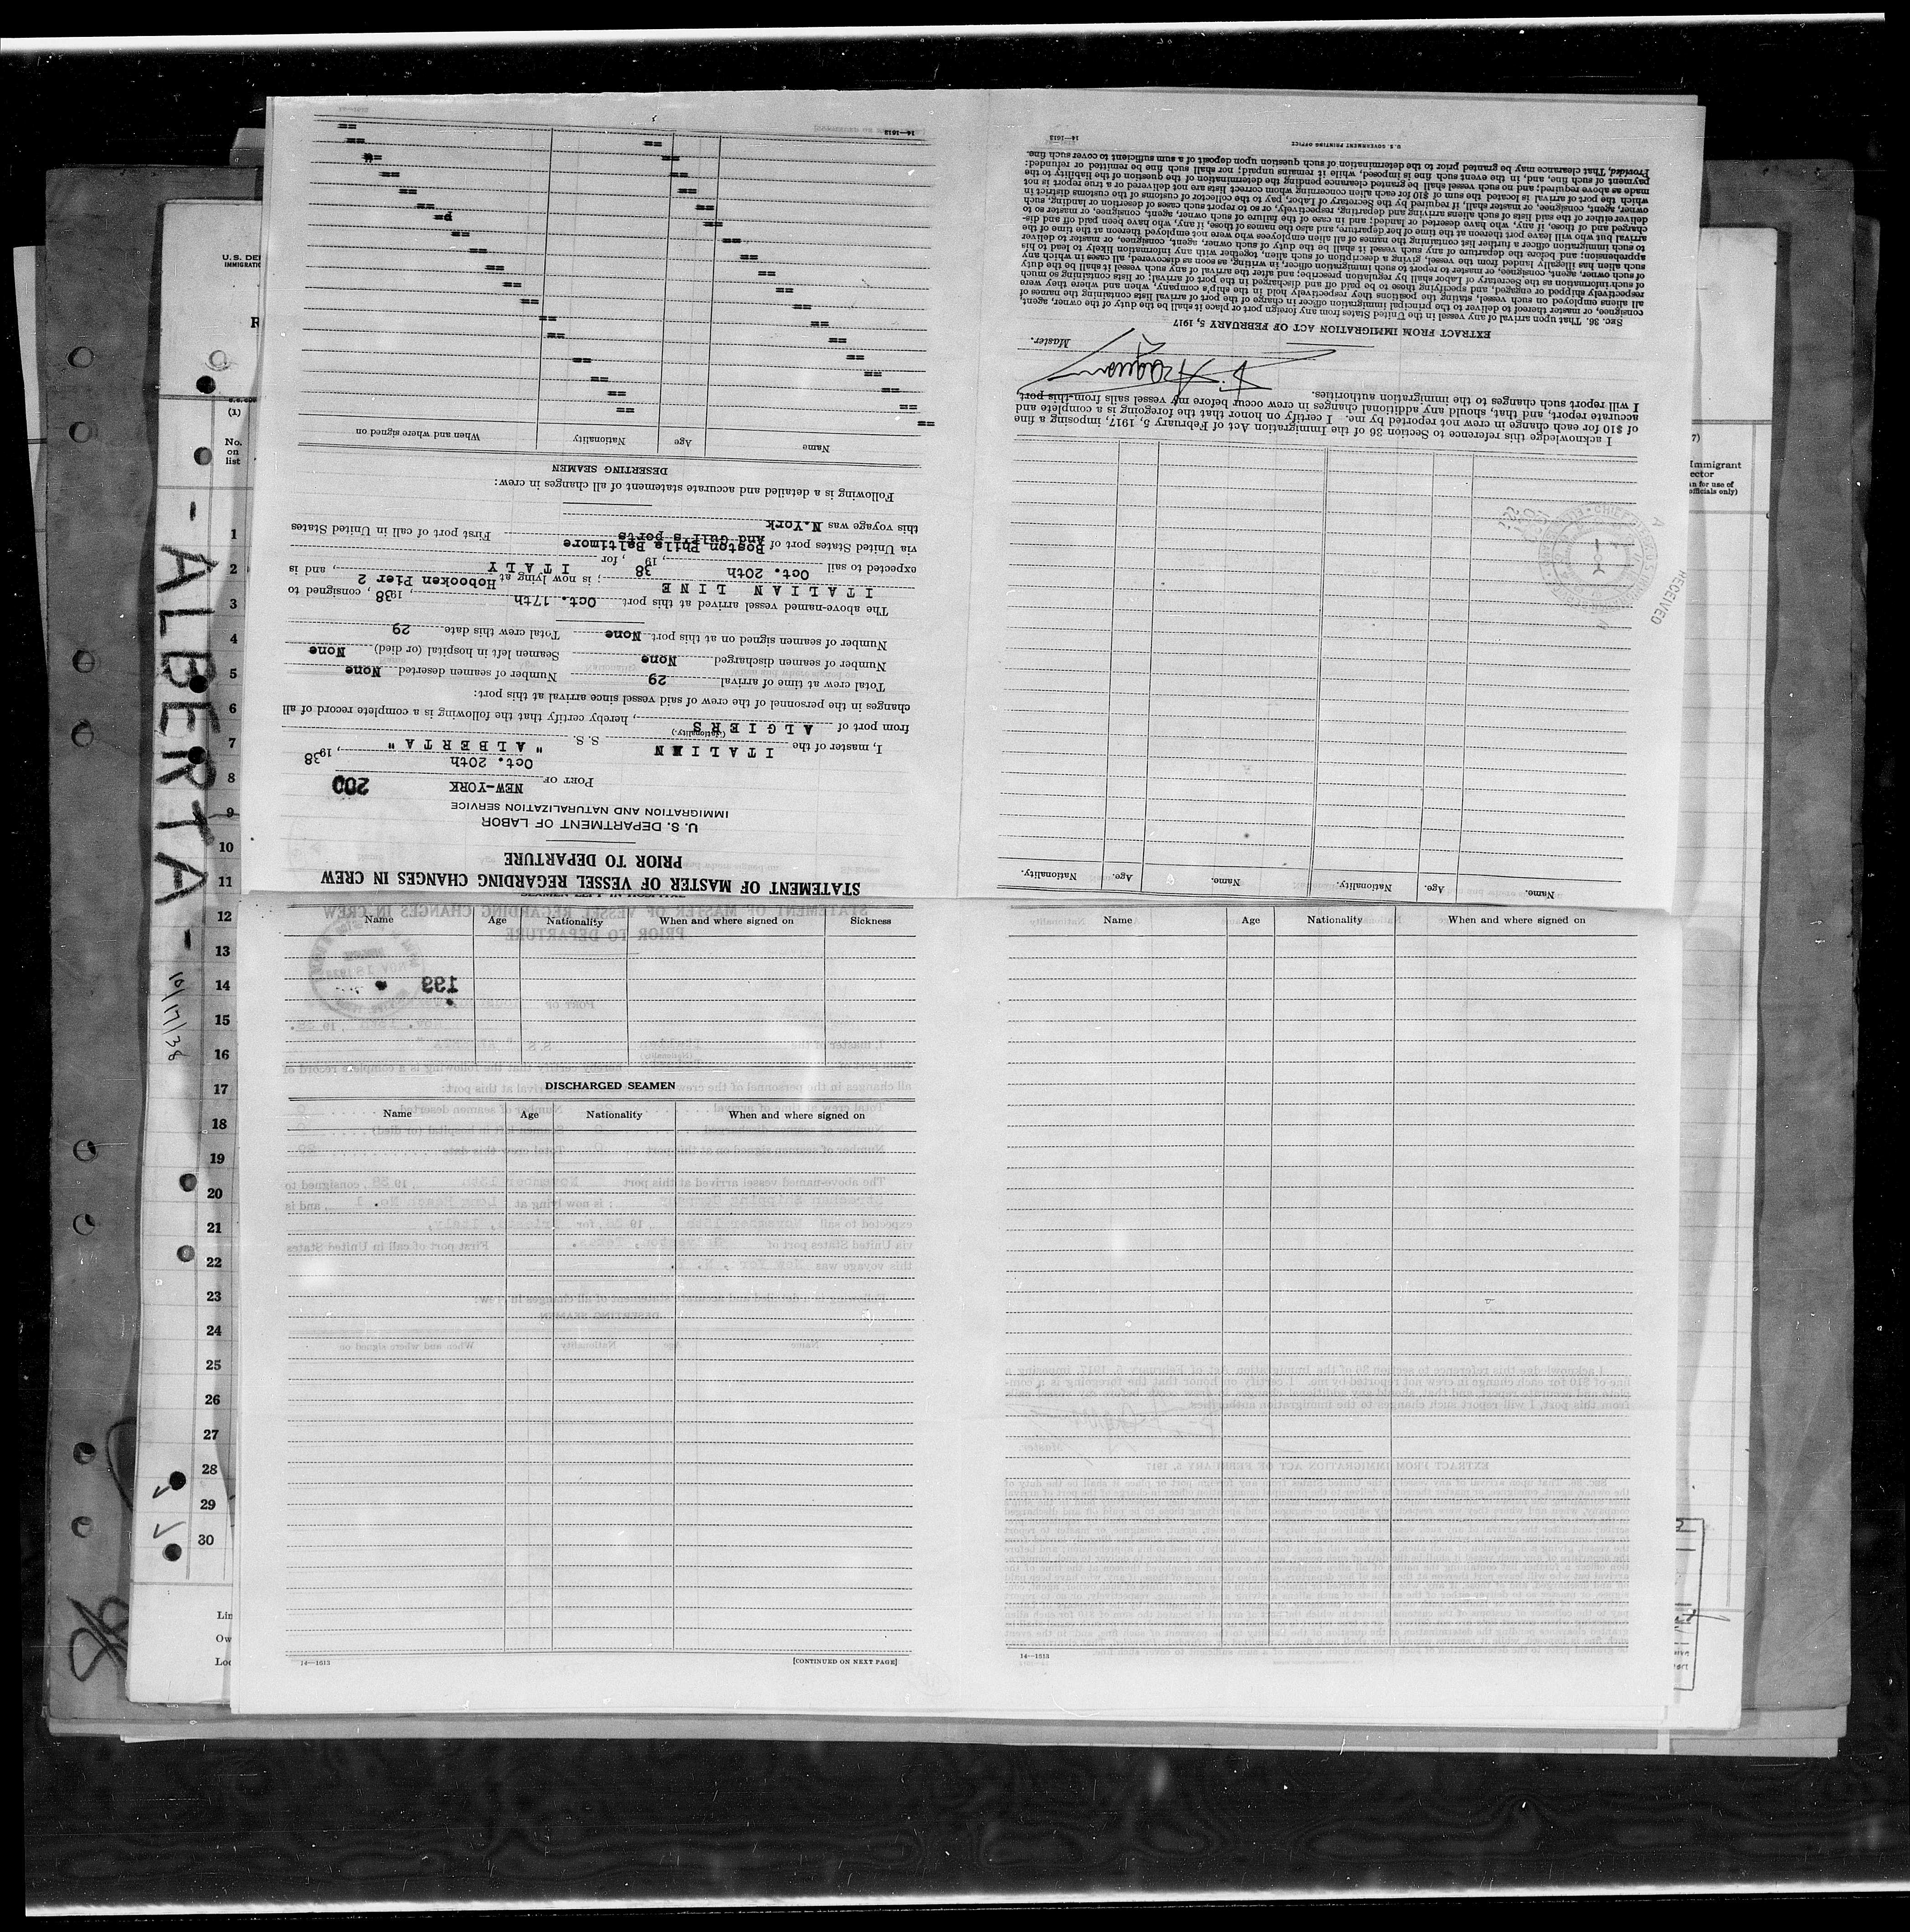 STATEMENT OF MASTER OF VESSEL REGARDING CHANGES IN CREW
PRIOR TO DEPARTURE
U. S. DEPARTMENT OF LABOR
IMMIGRATION AND NATURALIZATION SERVICE
200
PORT OF NEW-YORK
Oct. 20th, 1938
I, master of the ITALIAN S. S. "ALBERTA"
(Nationality.)
from port of ALGIERS, hereby certify that the following is a complete record of all
changes in the personnel of the crew of said vessel since arrival at this port:
Total crew at time of arrival 29 Number of seamen deserted None
Number of seamen discharged None Seamen left in hospital (or died) None
Number of seamen signed on at this port None Total crew this date 29
The above-named vessel arrived at this port Oct. 17th, 1938, consigned to
ITALIAN LINE; is now lying at Hobooken Pier 2
expected to sail Oct. 20th, 1938, for ITALY, and is
via United States port of Boston Phila Baltimore And Gulf's ports First port of call in United States
this voyage was N.York
Following is a detailed and accurate statement of all changes in crew:
DESERTING SEAMEN
Name Age Nationality When and where signed on
14—1613
Name. Age. Nationality. Name. Age. Nationality.
I acknowledge this reference to Section 36 of the Immigration Act of February 5, 1917, imposing a fine
of $10 for each change in crew not reported by me. I certify on honor that the foregoing is a complete and
accurate report, and that, should any additional changes in crew occur before my vessel sails from this port,
I will report such changes to the immigration authorities.
Master.
EXTRACT FROM IMMIGRATION ACT OF FEBRUARY 5, 1917
SEC. 36. That upon arrival of any vessel in the United States from any foreign port or place it shall be the duty of the owner, agent,
consignee, or master thereof to deliver to the principal immigration officer in charge of the port of arrival lists containing the names of
all aliens employed on such vessel, stating the positions they respectively hold in the ship's company, when and where they were
respectively shipped or engaged, and specifying those to be paid off and discharged in the port of arrival; or lists containing so much
of such information as the Secretary of Labor shall by regulation prescribe; and after the arrival of any such vessel it shall be the duty
of such owner, agent, consignee, or master to report to such immigration officer, in writing, as soon as discovered, all cases in which any
such alien has illegally landed from the vessel, giving a description of such alien, together with any information likely to lead to his
apprehension; and before the departure of any such vessel it shall be the duty of such owner, agent, consignee, or master to deliver
to such immigration officer a further list containing the names of all alien employees who were not employed thereon at the time of the
arrival but who will leave port thereon at the time of her departure, and also the names of those, if any, who have been paid off and dis-
charged and of those, if any, who have deserted or landed; and in case of the failure of such owner, agent, consignee, or master so to
deliver either of the said lists of such aliens arriving and departing, respectively, or so to report such cases of desertion or landing, such
owner, agent, consignee, or master shall, if required by the Secretary of Labor, pay to the collector of customs of the customs district in
which the port of arrival is located the sum of $10 for each alien concerning whom correct lists are not delivered or a true report is not
made as above required; and no such vessel shall be granted clearance pending the determination of the question of the liability to the
payment of such fine, and, in the event such fine is imposed, while it remains unpaid; nor shall such fine be remitted or refunded:
Provided, That clearance may be granted prior to the determination of such question upon deposit of a sum sufficient to cover such fine.
U. S. GOVERNMENT PRINTING OFFICE
14—1613
RECEIVED
Name Age Nationality When and where signed on Sickness
199
DISCHARGED SEAMEN
Name Age Nationality When and where signed on
14—1613 [CONTINUED ON NEXT PAGE]
Name Age Nationality When and where signed on
14—1613
- ALBERTA - 10/17/38
U.S. DE
IMMIGRATIO
R
(1)
No.
on
list
1
2
3
4
5
6
7
8
9
10
11
12
13
14
15
16
17
18
19
20
21
22
23
24
25
26
27
28
29
30
Lin
Ow
Loc
7)
Immigrant
ector
n for use of
officials only)